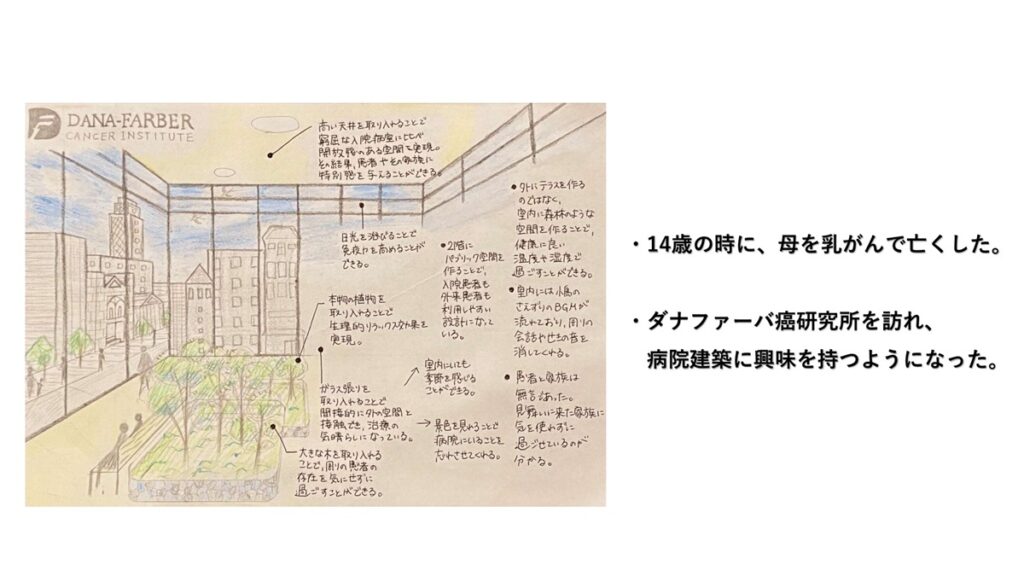 DANA-FARBER
CANCER INSTITUTE
高い天井を取り入れることで
窮屈な入院病室に比べ
開放感のある空間を実現。
その結果、患者やその家族に
特別感を与えることができる。
日光を浴びることで
免疫力を高めることが
できる。
本物の植物を
取り入れることで
生理的リラックス効果を
実現。
ガラス張りを
取り入れることで
間接的に外の空間と
接触でき、治療の
気晴らしになっている。
大きな木を取り入れる
ことで、周りの患者の
存在を気にせずに
過ごすことができる。
・2階に
パブリック空間を
作ることで、
入院患者も
外来患者も
利用しやすい
設計になって
いる。
室内にいても
季節を感じる
ことができる。
景色を見れることで
病院にいることを
忘れさせてくれる。
・外にテラスを作る
のではなく、
室内に森林のような
空間を作ることで、
健康に良い
温度や湿度で
過ごすことができる。
・室内には小鳥の
さえずりのBGMが
流れており、周りの
会話やせきの音を
消してくれる。
・患者と家族は
無言であった。
見舞いに来た家族に
気を使わずに
過ごせているのが
分かる。
・14歳の時に、母を乳がんで亡くした。
・ダナファーバ癌研究所を訪れ、
病院建築に興味を持つようになった。